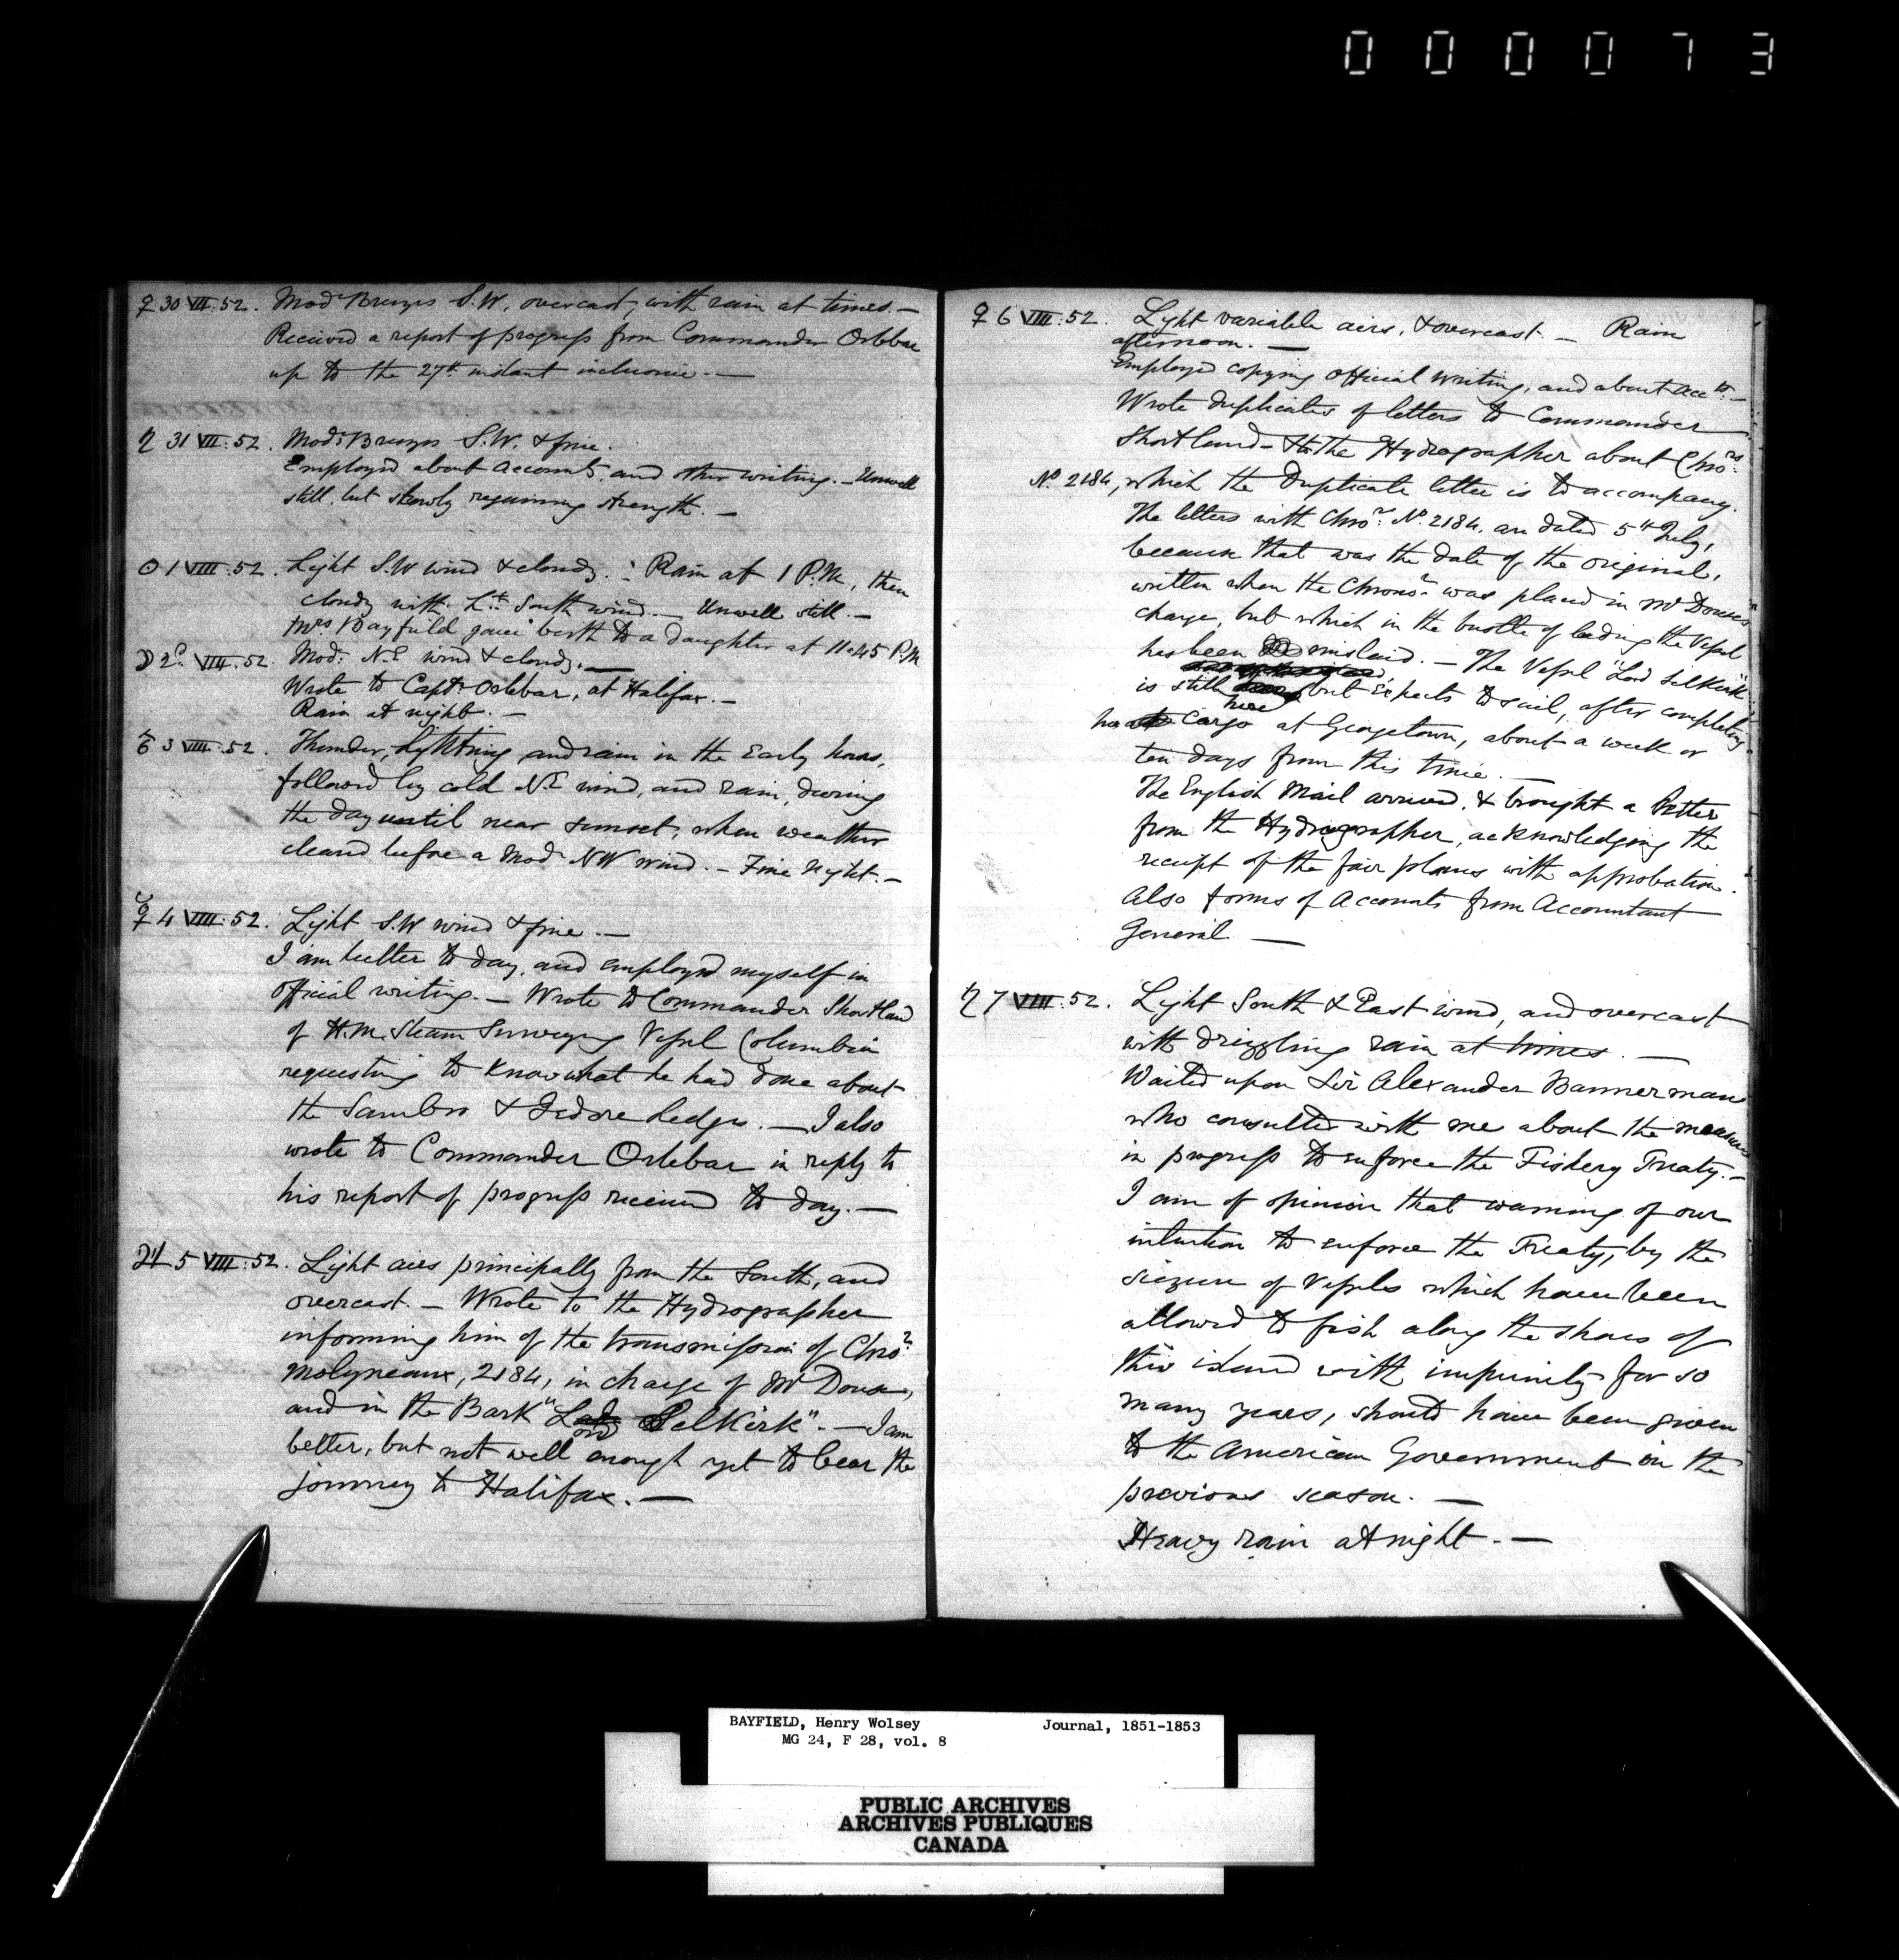 000073
♀ 30 VII:52. Mod: Breezes S.W. overcast, with rain at times.—
Received a report of progress from Commander Orlebar
up to the 27th instant inclusive.—
♄ 31 VII:52. Mod: Breezes S.W. & fine.
Employed about accounts, and other writing.—Unwell
still, but slowly regaining strength.—
☉ 1 VIII:52. Light S.W wind & cloudy.: Rain at 1 P.M, then
cloudy with Lt. South wind.— Unwell still.—
Mrs Bayfield gave birth to a daughter at 11.45 P.M
☽ 2d. VIII:52. Mod: N.E wind & cloudy.—
Wrote to Capt: Orlebar, at Halifax.—
Rain at night.—
♂ 3 VIII:52. Thunder, lightning and rain in the Early hours,
followed by cold N.E wind, and rain, during
the day until near sunset, when weather
cleared before a Mod NW wind.— Fine night.—
☿ 4 VIII:52. Light S.W wind & fine.—
I am better to day, and employed myself in
official writing.— Wrote to Commander Shortland
of H.M. Steam Surveying Vessel Columbia
requesting to know what he had done about
the Sambro & Isdore Ledges.— I also
wrote to Commander Orlebar in reply to
his report of progress received to day.—
♃ 5 VIII:52. Light airs principally from the South, and
overcast.— Wrote to the Hydrographer
informing him of the transmission of Chror
Molyneaux, 2184, in charge of Mr Douse,
and in the Bark "Lord Selkirk".— I am
better, but not well enough yet to bear the
journey to Halifax.—
♀ 6 VIII:52. Light variable airs, & overcast.— Rain
afternoon.—
Employed copying official writing, and about accts.—
Wrote duplicates of letters to Commander
Shortland— & to the Hydrographer about Chror
No. 2184, which the Duplicate letter is to accompany.
The letters with Chror No. 2184. are dated 5th July,
because that was the date of the original,
written when the Chronor was placed in Mr Douse's
charge, but which in the bustle of lading the Vessel
has been mislaid.— The Vessel "Lord Selkirk"
is still here but expects to sail, after completing
her cargo at Georgetown, about a week or
ten days from this time.—
The English Mail arrived, & brought a letter
from the Hydrographer, acknowledging the
receipt of the fair plans with approbation.
Also forms of Accounts from Accountant
General—
♄ 7 VIII:52. Light South & East wind, and overcast
with drizzling rain at times.—
Waited upon Sir Alexander Bannerman
who consulted with me about the measures
in progress to enforce the Fishery Treaty.—
I am of opinion that warning of our
intention to enforce the Treaty, by the
siezure of Vessels which have been
allowed to fish along the shores of
this island with impunity for so
many years, should have been given
to the American Government in the
previous season.—
Heavy rain at night.—
BAYFIELD, Henry Wolsey Journal, 1851-1853
MG 24, F 28, vol. 8
PUBLIC ARCHIVES
ARCHIVES PUBLIQUES
CANADA